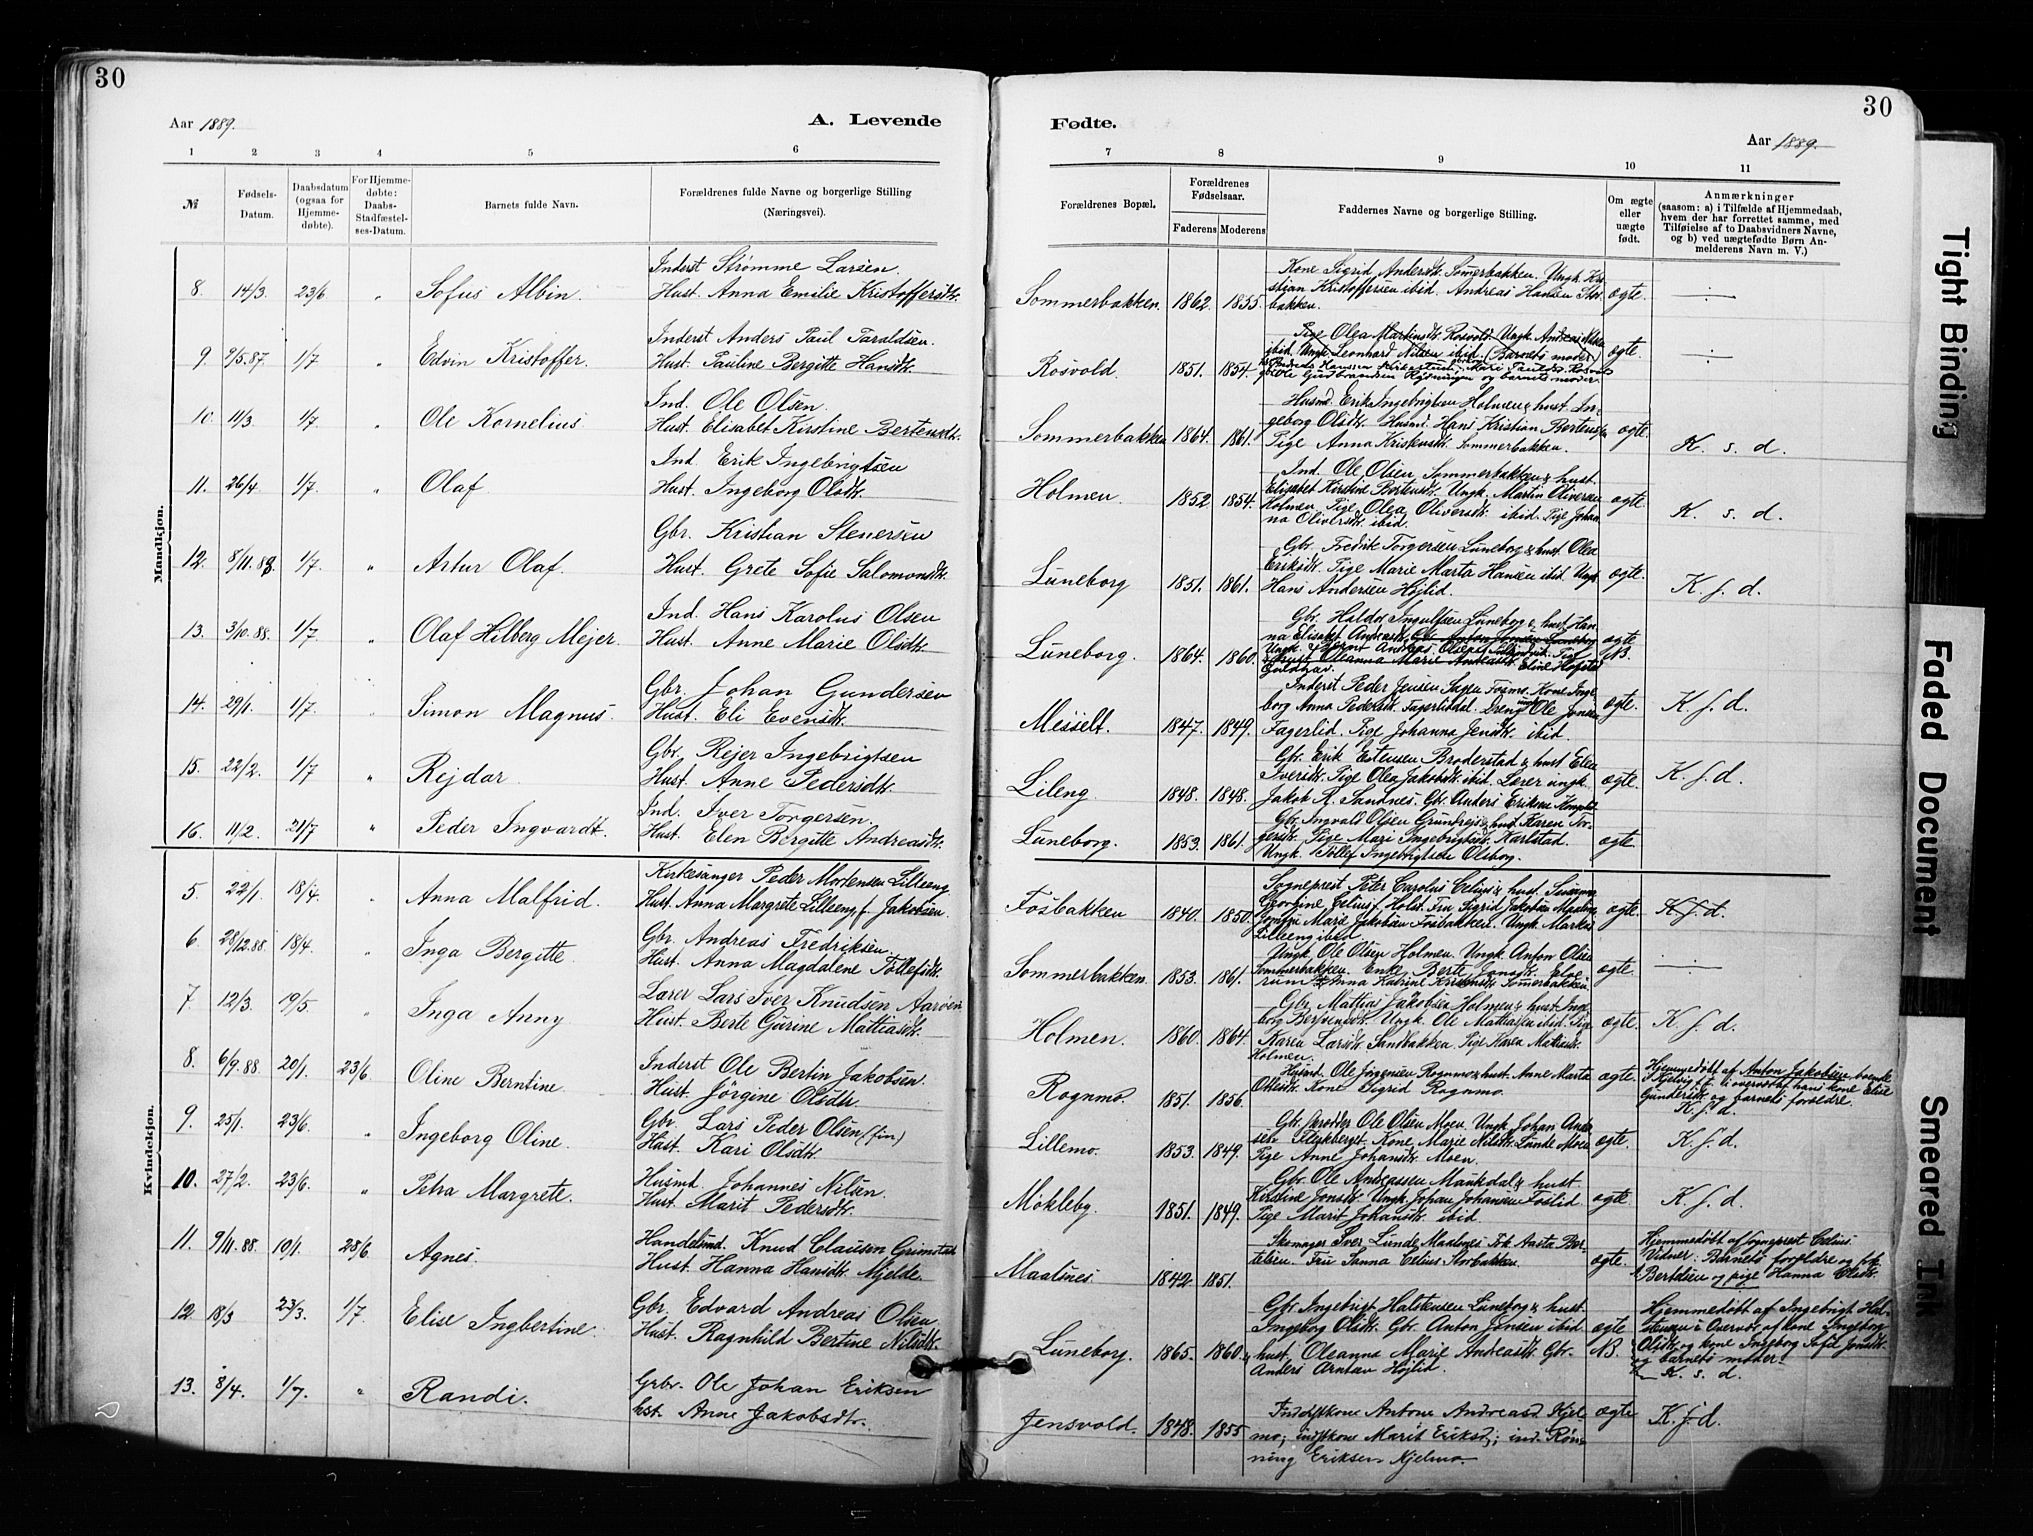 30
30
Aar 1889.
A. Levende
Fødte.
Aar 1889.
1 2 3 4 5 6
7 8 9 10 11
№
Fødsels-Datum.
Daabsdatum (ogsaa for Hjemme-døbte).
For Hjemme-døbte: Daabs-Stadfæstel-ses-Datum.
Barnets fulde Navn.
Forældrenes fulde Navne og borgerlige Stilling
(Næringsvei).
Forældrenes Bopæl.
Forældrenes Fødselsaar.
Faderens Moderens
Faddernes Navne og borgerlige Stilling.
Om ægte eller uægte født.
Anmærkninger
(saasom: a) i Tilfælde af Hjemmedaab,
hvem der har forrettet samme, med
Tilføielse af to Daabsvidners Navne,
og b) ved uægtefødte Børn An-
melderens Navn m. V.)
Mandkjøn.
8. 14/3. 23/6 " Sofus Albin.
Inderst Strømme Larsen.
Hust. Anna Emilie Kristoffersdtr.
Sommerbakken. 1862. 1855.
Kone Sigrid Andersdtr. Sommerbakken. Ungk. Kri-
stian Kristoffersen ibid. Andreas Hansen Stor-
bakken.
ægte.
9. 9/5.87. 1/7 " Edvin Kristoffer.
Inderst Anders Paul Taraldsen
Hust. Pauline Bergitte Hansdtr.
Rosvold. 1851. 1854.
Pige Olea Martinsdtr. Rosvold. Ungk. Andreas
ibid. Ungk. Leonhard Nilsen ibid. (Barnets moder)
ægte.
10. 11/3 1/7 " Ole Kornelius
Ind. Ole Olsen.
Hust. Elisabet Kirstine Bertensdtr.
Sommerbakken 1864. 1861.
Husmd. Erik Ingebrigtsen Holmen & hust. In-
geborg Olsdtr. Husmd. Hans Kristian Bertensen
Pige Anna Kristensdtr. Sommerbakken.
ægte.
K. s. d.
11. 26/4. 1/7. " Olaf
Ind. Erik Ingebrigtsen
Hust. Ingeborg Olsdtr.
Holmen. 1852 1854.
Ind. Ole Olsen Sommerbakken & hust.
Elisabet Kirstine Bertensdtr. Ungk. Martin Oliversen
Holmen. Pige Olea Oliversdtr. ibid. Pige Johan-
na Oliversdtr. ibid.
ægte.
K. s. d.
12. 8/11.88. 1/7. " Artur Olaf.
Gbr. Kristian Stenersen
Hust. Grete Sofie Salomonsdtr.
Luneborg 1851. 1861.
Gbr. Fredrik Torgersen Luneborg & hust. Olea
Eriksdtr. Pige Marie Marta Hansen ibid. Ungk.
Hans Andersen Højlid.
ægte.
K. s. d.
13. 3/10.88. 1/7. " Olaf Hilberg Mejer.
Ind. Hans Karolus Olsen
Hust. Anne Marie Olsdtr.
Luneborg. 1864. 1860.
Gbr. Haldor Ingulfsen Luneborg & hust. Han-
na Elisabet Andreasdtr. Gbr. Anton Jonsen Luneborg
& hust. Oleanna Marie Andreasdtr.
ægte
NB.
14. 29/1. 1/7. Simon Magnus.
Gbr. Johan Gundersen
Hust. Eli Evensdtr.
Messelt. 1847. 1849.
Inderst Peder Jensen Kone Inge-
borg Anna Pedersdtr. Ole Jonsen
Fagerlid. Pige Johanna Jensdtr. ibid.
ægte.
K. s. d.
15. 22/2. 1/7 " Rejdar.
Gbr. Rejer Ingebrigtsen
Hust. Anne Pedersdtr.
Lileng. 1848. 1848.
Gbr. Erik Estensen Broderstad & hust Elen
Iversdtr. Pige Olea Jakobsdtr. ibid. Lærer ungk.
Jakob R. Sandnes. Gbr. Anders Eriksen
ægte.
K. s. d.
16. 11/2. 21/7 " Peder Ingvardt.
Ind. Iver Torgersen.
Hust. Elen Bergitte Andreasdtr.
Luneborg. 1853. 1861.
Gbr. Ingvald Olsen & hust Karen Tor-
gersdtr. Pige Mari Ingebrigtsdtr. Karlstad.
Ungk. Tollef Ingebrigtsen Olsborg.
ægte
Kvindekjøn.
5. 22/1. 18/4. Anna Malfrid.
Kirkesanger Peder Mortensen Lilleeng
Hust. Anna Margrete Lilleeng f. Jakobsen.
Fosbakken 1840. 1850.
Sogneprest Peter Carolus Celius & hust. Susanna
Georgine Celius f. Holst. Fru Sigrid Jakobsen
Marie Jakobsen Fosbakken. Ungk. Markus
Lilleeng ibid
ægte.
K. s. d.
6. 28/12.88. 18/4. Inga Bergitte
Gbr. Andreas Fredriksen.
Hust. Anna Magdalene Tollefsdtr.
Sommerbakken. 1853. 1861.
Ungk. Ole Olsen Holmen. Ungk. Anton Olsen
Sommerbakken. Enke Berte Jonsdtr. Elve-
rum Anna Katrine Kristensdtr. Sommerbakken
ægte.
7 12/3. 19/5. " Inga Anny
Lærer Lars Iver Knudsen Aarøen
Hust. Berte Gurine Mattiasdtr.
Holmen. 1860. 1864.
Gbr. Mattias Jakobsen Holmen & hust. Inge-
borg Berntsdtr. Ungk. Ole Mattiassen ibid. Pige
Karen Larsdtr. Sandbakken. Pige Karen Mattiasdtr.
Holmen.
ægte.
K. s. d.
8. 6/9.88. 20/1. 23/6 Oline Berntine.
Inderst Ole Bertin Jakobsen.
Hust. Jörgine Olsdtr.
Rognmo. 1851. 1856.
Husmd. Ole Jörgensen Rognmo & hust. Anne Marta
Olesdtr. Kone Sigrid Rognmo.
ægte.
Hjemmedøbt af Anton Jakobsen boende
i overværelse af hans kone Elise
Gundersdtr. og barnets forældre.
K. s. d.
9. 25/1. 23/6. " Ingeborg Oline.
Gbr. Lars Peder Olsen (fin)
Hust. Kari Olsdtr.
Lillemo. 1853. 1849.
Gbr. Ole Olsen Moen. Ungk. Johan Ander-
sen Kone Marie Nilsdtr. Lunde Moen
Pige Anne Johansdtr. Moen.
ægte.
K. s. d.
10. 27/2. 23/6. " Petra Margrete.
Husmd. Johannes Nilsen.
Hust. Marit Pedersdtr.
Mokleby. 1851. 1849.
Gbr. Ole Andreassen Maukdal & hust
Kirstine Jonsdtr. Ungk. Johan Johansen Foslid
Pige Marit Johansdtr. ibid
ægte.
K. s. d.
11. 9/11.88. 10/1. 28/6 Agnes.
Handelsmd. Knud Clausen Grimstad
Hust. Hanna Hansdtr. Mjelde.
Maalsnes 1842 1851.
Skomager Iver Lunde Maalsnes. Frk. Aasta Ber-
telsen. Fru Sanna Celius Storbakken.
ægte.
Hjemmedøbt af sogneprest Celius
Vidner: Barnets forældre og frk.
A. Bertelsen og pige Hanna Olsdtr.
12 18/3 23/3. 1/7. Elise Ingbertine.
Gbr. Edvard Andreas Olsen
Hust. Ragnhild Bertine Nilsdtr.
Luneborg. 1865. 1860.
Gbr. Ingebrigt Halstensen Luneborg & hust.
Ingeborg Olsdtr. Gbr. Anton Jonsen ibid
& hust. Oleanna Marie Andreasdtr. Gbr.
Anders Arntsen Højlid.
ægte
NB.
Hjemmedøbt af Ingebrigt Hal-
stensen i Overvær af kone Ingeborg
Olsdtr. og kone Ingeborg Sofie Jonsdtr.
og barnets moder.
K. s. d.
13. 8/4. 1/7. " Randi.
Grbr. Ole Johan Eriksen
hst. Anne Jakobsdtr.
Jensvold. 1848. 1855
Indstkone Antone Andreasd. Kjel-
mo; indstkone Marit Eriksd.; ind. Røn-
ning Eriksen Kjelmo.
ægte
K. s. d.
Tight Binding
Faded Document
Smeared Ink